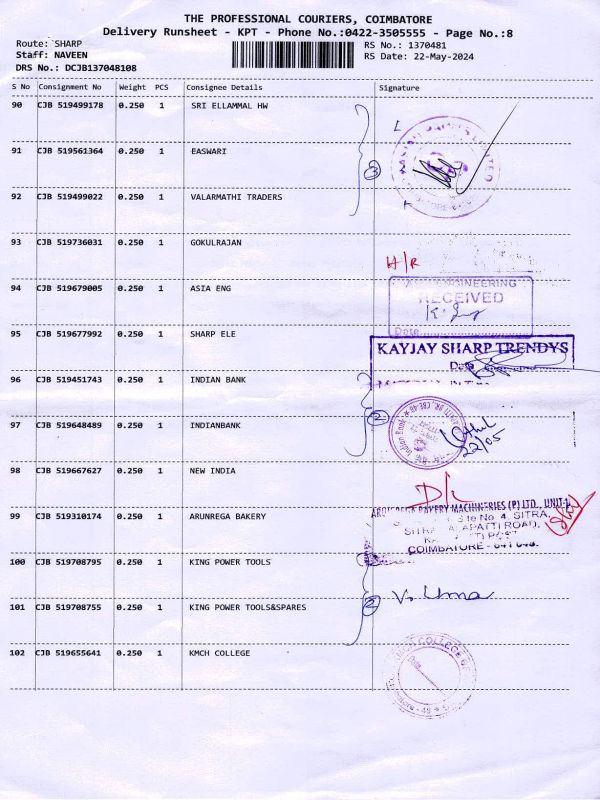 THE PROFESSIONAL COURIERS, COIMBATORE
Delivery Runsheet - KPT - Phone No.:0422-3505555 - Page No.:8
Route: SHARP RS No.: 1370481
Staff: NAVEEN RS Date: 22-May-2024
DRS No.: DCJB137048108
S No Consignment No Weight PCS Consignee Details Signature
90 CJB 519499178 0.250 1 SRI ELLAMMAL HW
91 CJB 519561364 0.250 1 EASWARI
3
92 CJB 519499022 0.250 1 VALARMATHI TRADERS
93 CJB 519736031 0.250 1 GOKULRAJAN
H/R
94 CJB 519679005 0.250 1 ASIA ENG
ENGINEERING
RECEIVED
Date
95 CJB 519677992 0.250 1 SHARP ELE
KAYJAY SHARP TRENDYS
Date
96 CJB 519451743 0.250 1 INDIAN BANK
2
97 CJB 519648489 0.250 1 INDIANBANK
Indian Bank
22/05
98 CJB 519667627 0.250 1 NEW INDIA
D/L
99 CJB 519310174 0.250 1 ARUNREGA BAKERY
BAKERY MACHINERIES (P) LTD., UNIT-
Site No. 4, SITRA,
COIMBATORE
100 CJB 519708795 0.250 1 KING POWER TOOLS
2
V. Uma
101 CJB 519708755 0.250 1 KING POWER TOOLS&SPARES
102 CJB 519655641 0.250 1 KMCH COLLEGE
KMCH COLLEGE